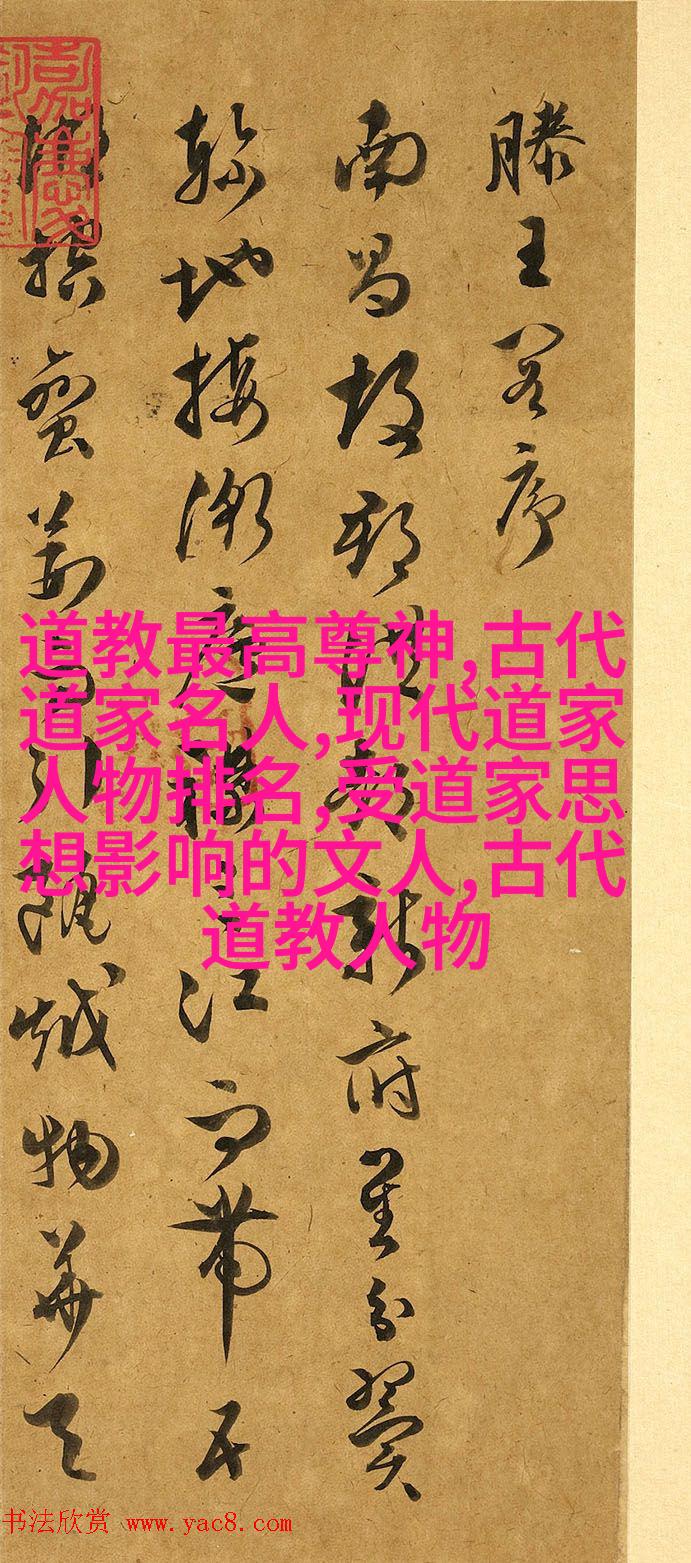 滕王閣序
南昌故郡洪都新府星分翼
軫地接衡廬襟三江而帶五
湖控蠻荊而引甌越物華天
道教最高尊神,古代
道家名人,现代道家
人物排名,受道家思
想影响的文人,古代
道教人物
书法欣赏 www.yac8.com